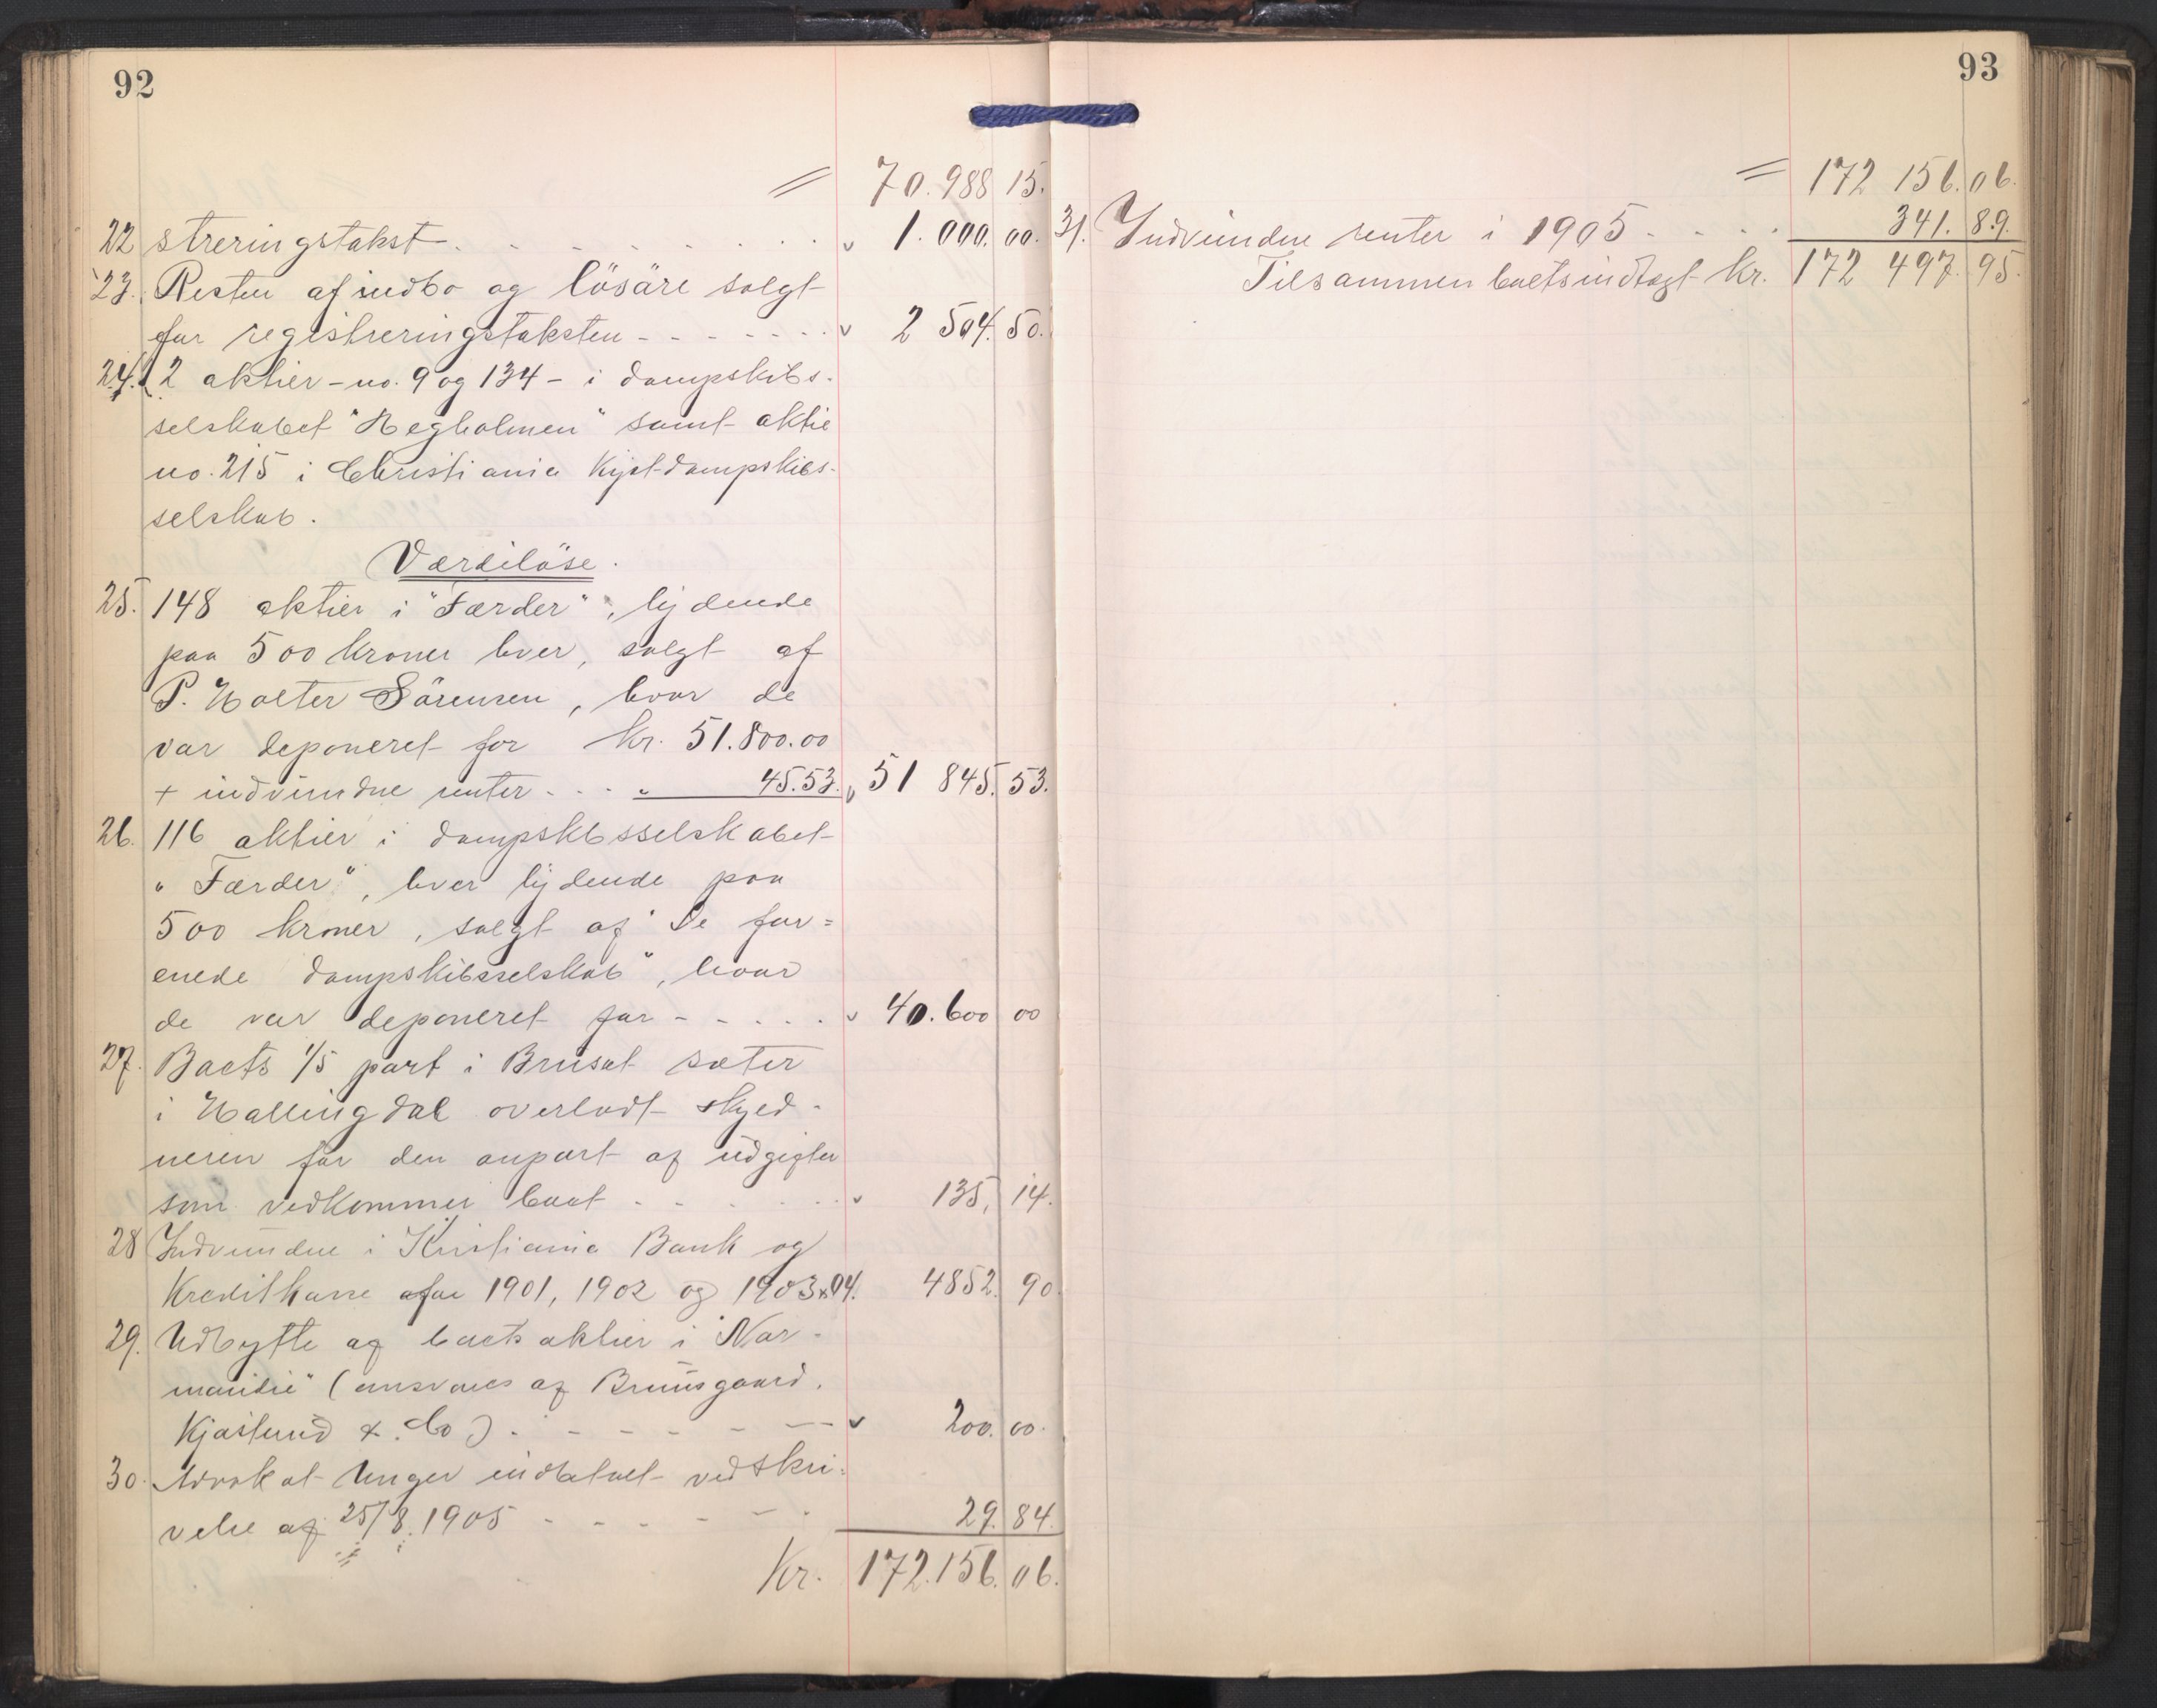 92
= 70.988 15.
22 streringstakst . . . . . . . . v 1.000.00.
23. Resten af indbo og lösäre solgt
for registreringstaksten - - - - - - - v 2 504.50.
24. 2 aktier - no. 9 og 134 - i dampskibs-
selskabet "Hegholmen" samt aktie
no. 215 i Christiania Kystdampskibs-
selskab.
Værdilöse.
25. 148 aktier i "Færder", lydende
paa 500 kroner hver, solgt af
P. Holter Sörensen, hvor de
var deponeret for kr. 51.800.00
+ indvundne renter - - - " 45.53. v 51 845.53.
26. 116 aktier i dampskbsselskabet
"Færder", hver lydende paa
500 kroner, solgt af "De for=
enede dampskibsselskab", hvor
de var deponeret for - - - - . . v 40.600 00
27. Boets 1/5 part i Brusat sæter
i Hallingdal overladt skyld-
neren for den anpart af udgifter
som vedkommer boet - - . . . . v 135, 14.
28 Indvundne i Kristiania Bank og
Kreditkasse for 1901, 1902 og 1903 & 04. 4852. 90.
29. Udbytte af boets aktier i "Nor-
mandie" (ansvares af Bruusgaard,
Kjøsterud & Co) . - - - - - - v 200.00.
30. Advokat Unger indbetalt ved skri-
velse af 25/8.1905 - - - - - - . 29.84.
Kr. 172.156.06.
93
= 172 156.06.
31. Indvundne renter i 1905 - - - . 341.89.
Tilsammen boets indtægt kr. 172 497.95.